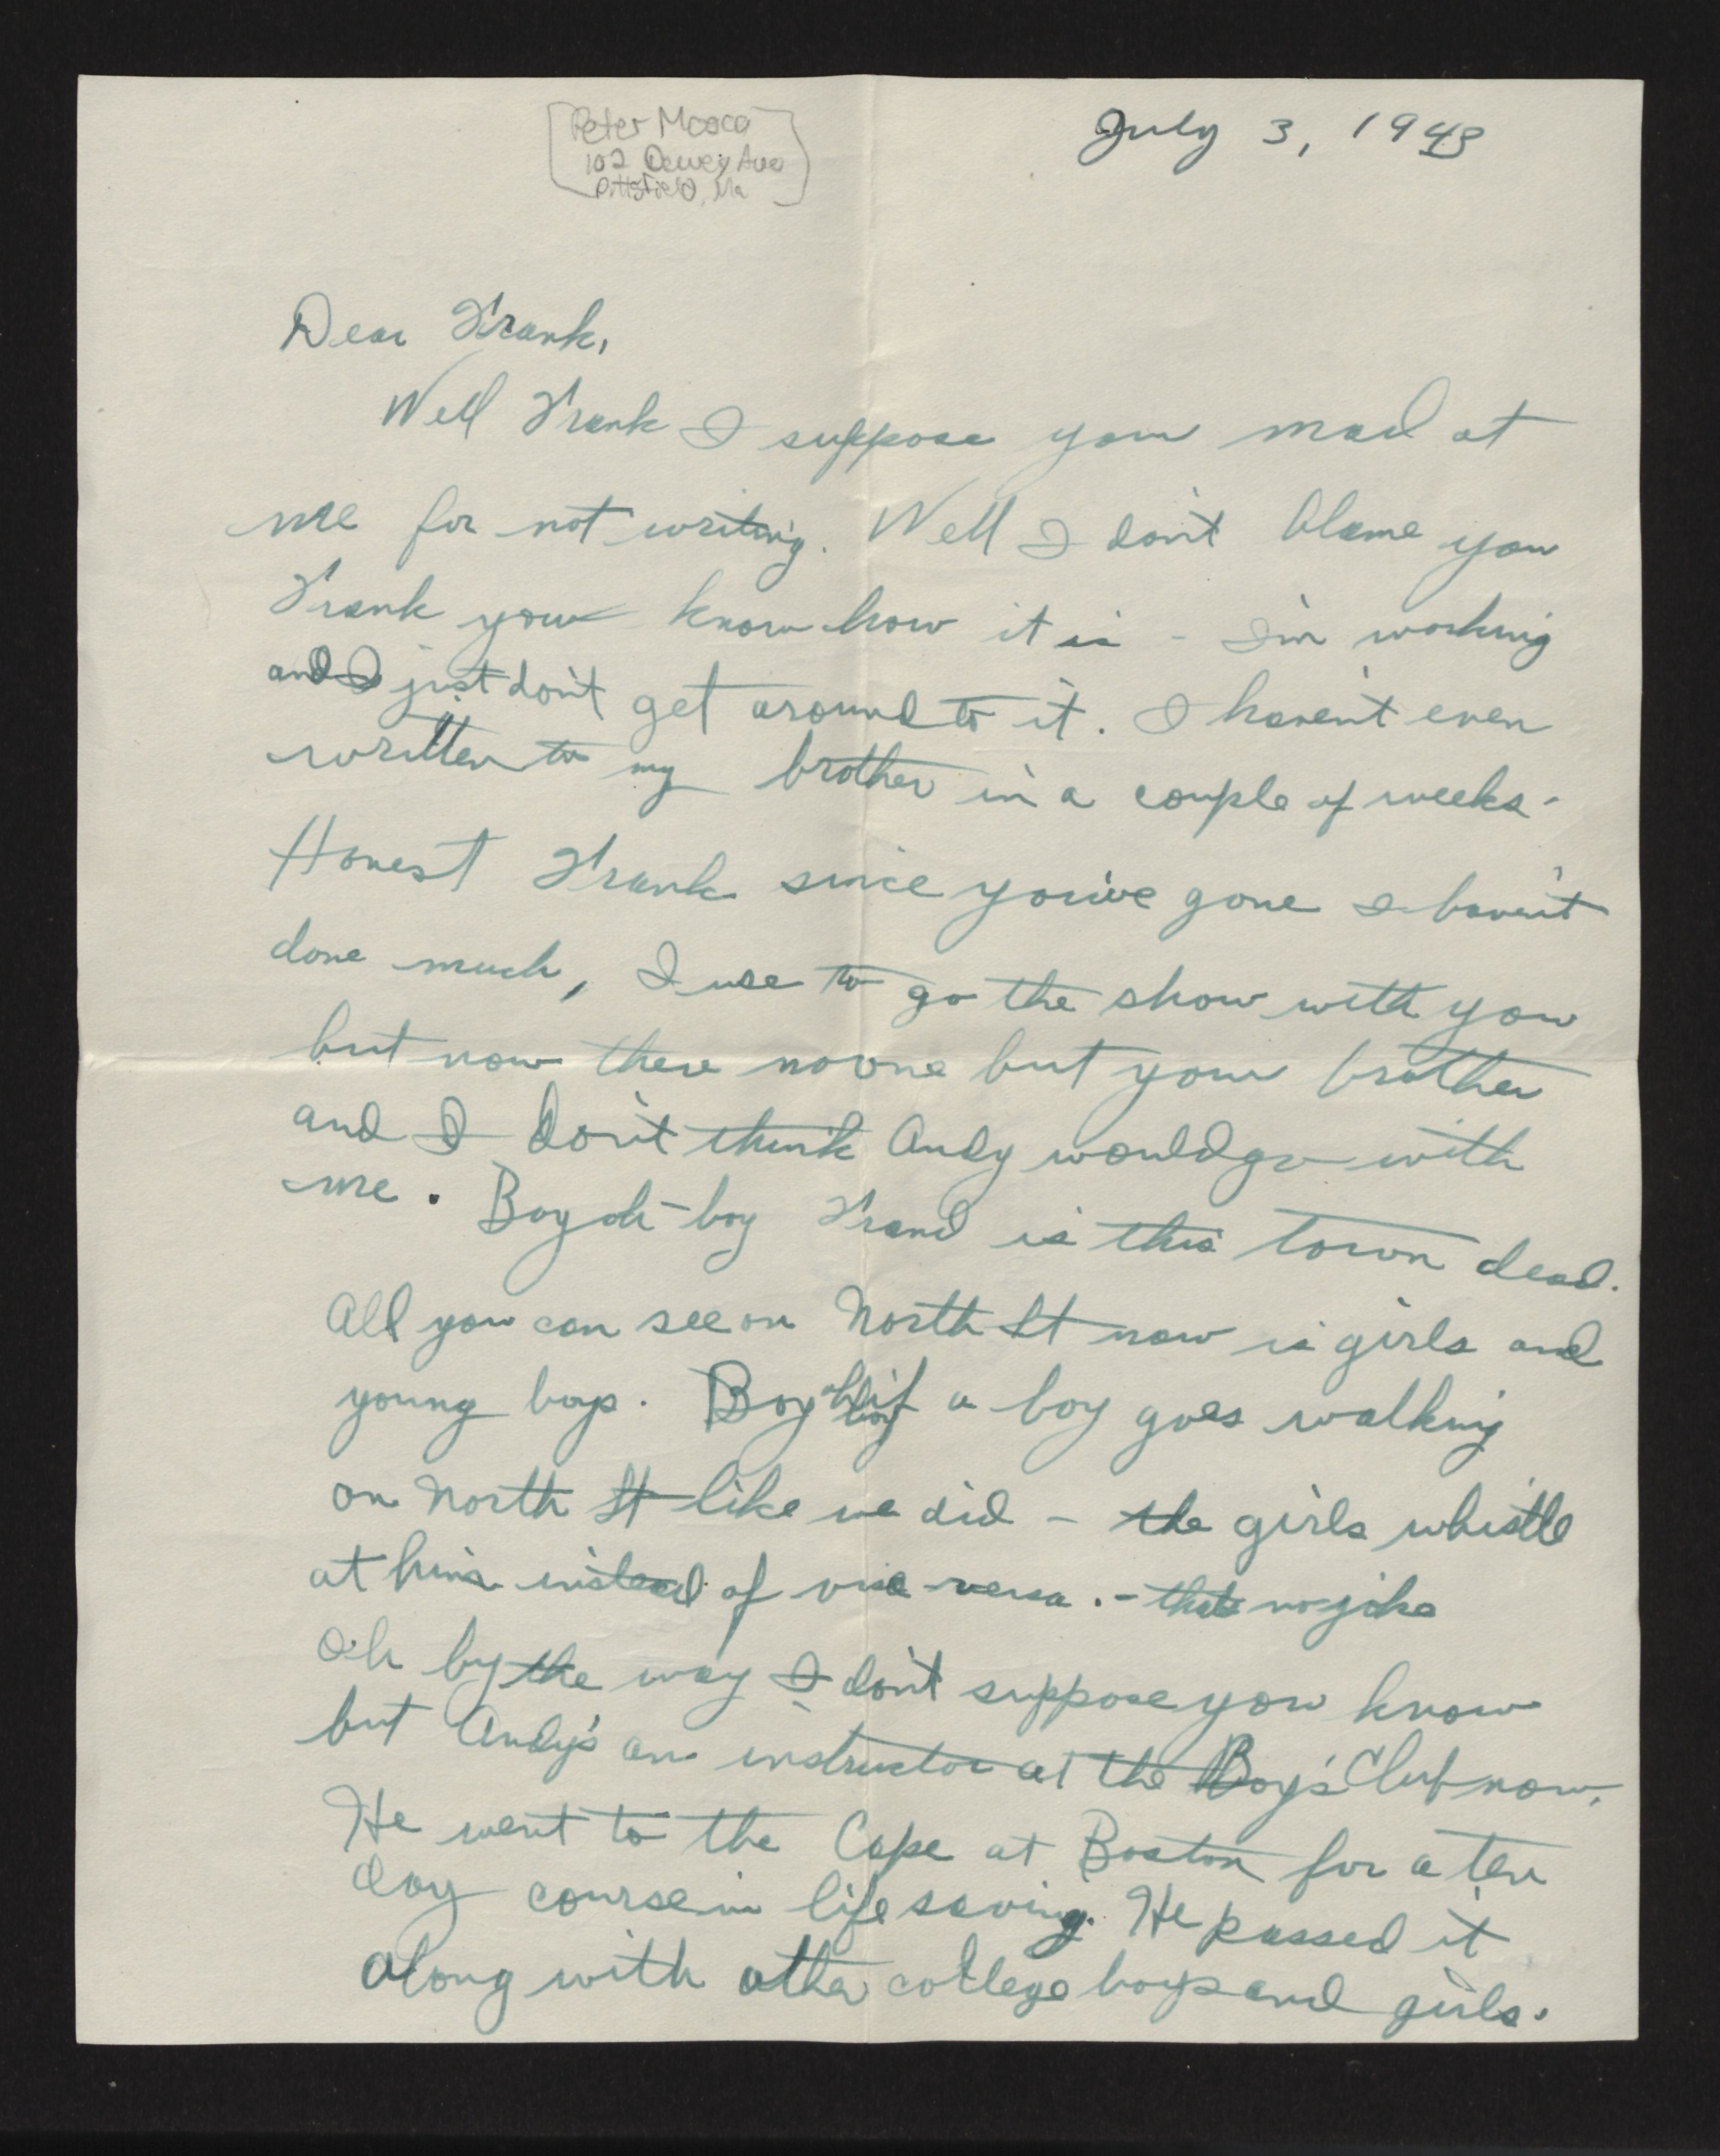 Peter Mosca
102 Dewey Ave
Pittsfield, Ma
July 3, 1943
Dear Frank,
Well Frank I suppose your mad at
me for not writing. Well I don't blame you
Frank you know how it is - I'm working
and I just don't get around to it. I haven't even
written to my brother in a couple of weeks.
Honest Frank since you've gone I haven't
done much, I use to go the show with you
but now there no one but your brother
and I don't think Andy would go with
me. Boy oh-boy Frank is this town dead.
All you can see on North St now is girls and
young boys. Boy oh boy if a boy goes walking
on North St like we did - the girls whistle
at him instead of vise-versa. - thats no joke
Oh by the way I don't suppose you know
but Andy's an instructor at the Boy's Club now.
He went to the Cape at Boston for a ten
day course in life saving. He passed it
along with other college boys and girls.